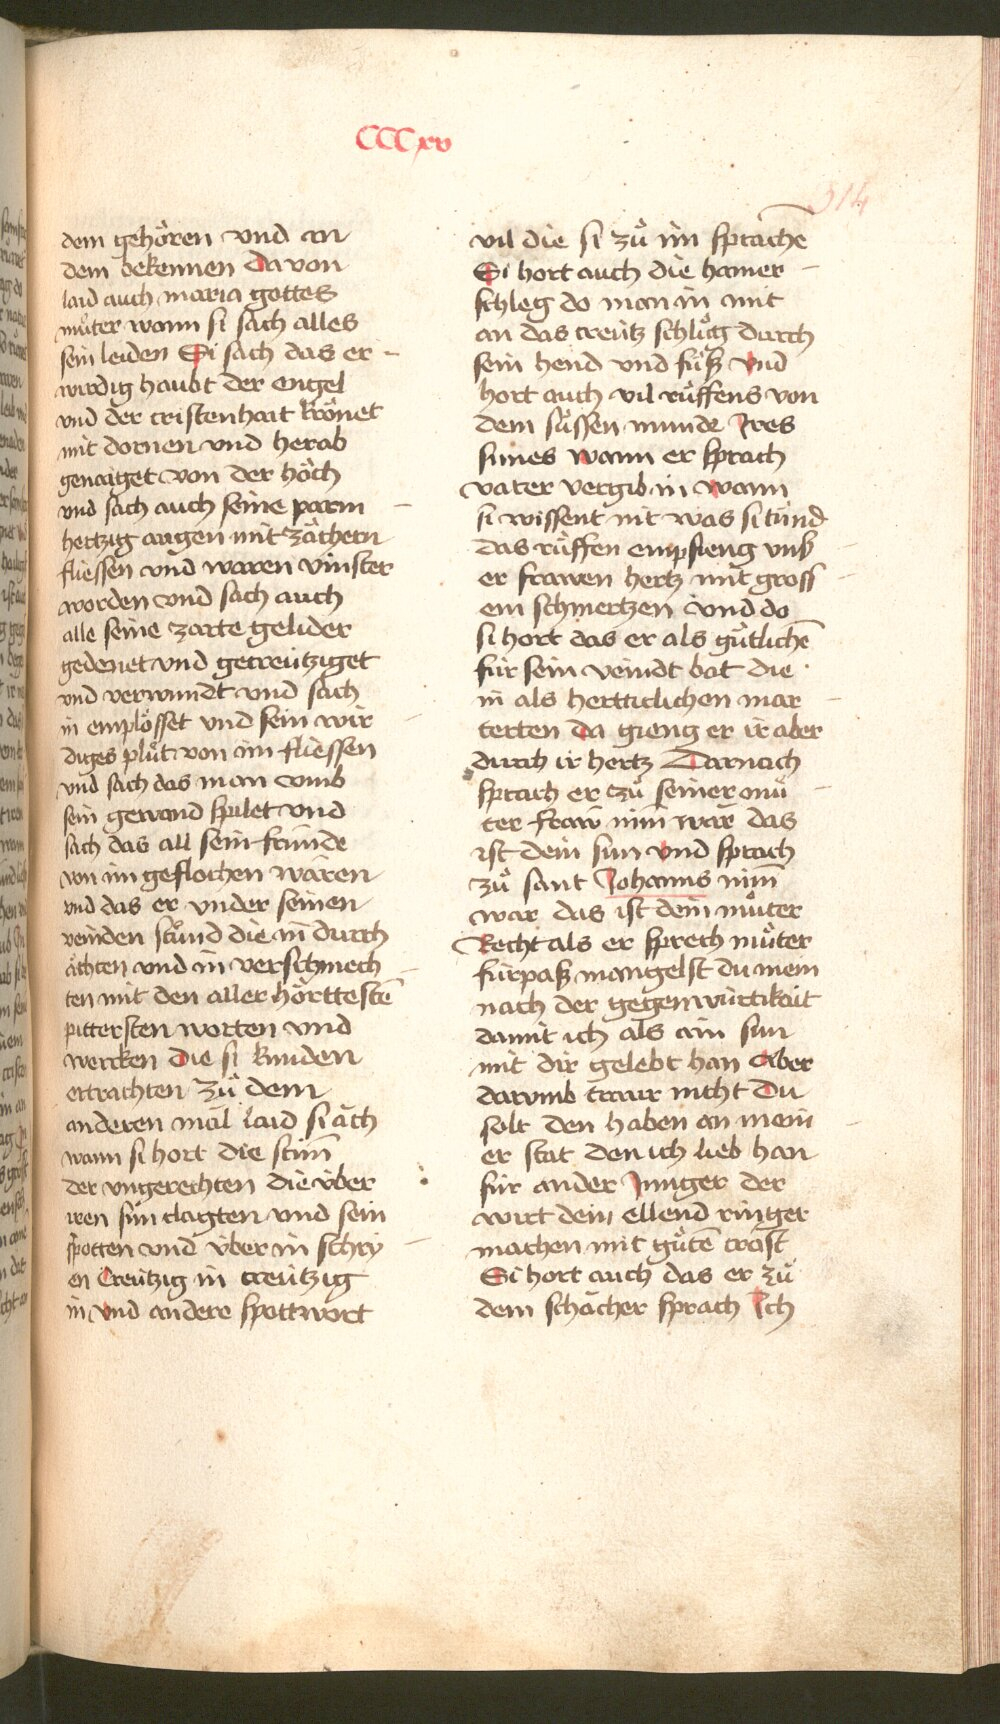 CCCxv
314
dem gehören vnd an
dem bekennen Da von
laid auch maria gottes
můter wann si sach alles
sein leiden Si sach das er -
wirdig haubt der engel
vnd der cristenhait krönet
mit dornen vnd herab
genaiget von der höch
vnd sach auch seine parm -
hertzig augen mit zächern
fliessen vnd waren vinster
worden vnd sach auch
alle seine zarte gelider
gedenet vnd gecreütziget
vnd verwundt vnd sach
in emplösset vnd sein wir -
diges plůt von im fliessen
vnd sach das man vmb
sein gewand spilet vnd
sach das all sein fründe
von im geflochen wären
vnd das er vnder seinen
veinden stůnd die in durch
ächten vnd in verschmech -
ten mit den aller hörttestē
pittersten worten vnd
wercken die si kunden
ertrachten Zů dem
anderen mäl laid si äch
wann si hort die stim̄
der vngerechten die über
iren sün clagten vnd sein
spotten vnd über in schry -
en Creützig in creützig
in vnd andere spottwort
vil die si zů im sprachē
Si hort auch die hamer -
schleg do man in mit
an das creütz schlůg durch
sein hend vnd füß vnd
hort auch vil rüffens von
dem süssen munde Ires
sunes wann er sprach
vater vergib in wann
si wissent nit was si tünd
das rüffen empfieng vnß -
er frawen hertz mit gross -
em schmertzen vnd do
si hort das er als gütlichē
für sein veindt bat die
in als hertticlichen mar -
terten da gieng er ir aber
durch ir hertz Darnach
sprach er zů seiner mů -
ter fraw nim war das
ist dein sun vnd sprach
zů sant Johanns nim̄
war das ist dein můter
Recht als er sprech můter
fürpaß mangelst du mein
nach der gegenwürtikait
damit ich als ain sun
mit dir gelebt han Aber
darumb traur nicht Du
solt den haben an mein -
er stat den ich lieb han
für ander Junger der
wirt dein ellend ringer
machen mit gůtē trost
Si hort auch das er zů
dem schächer sprach Ich